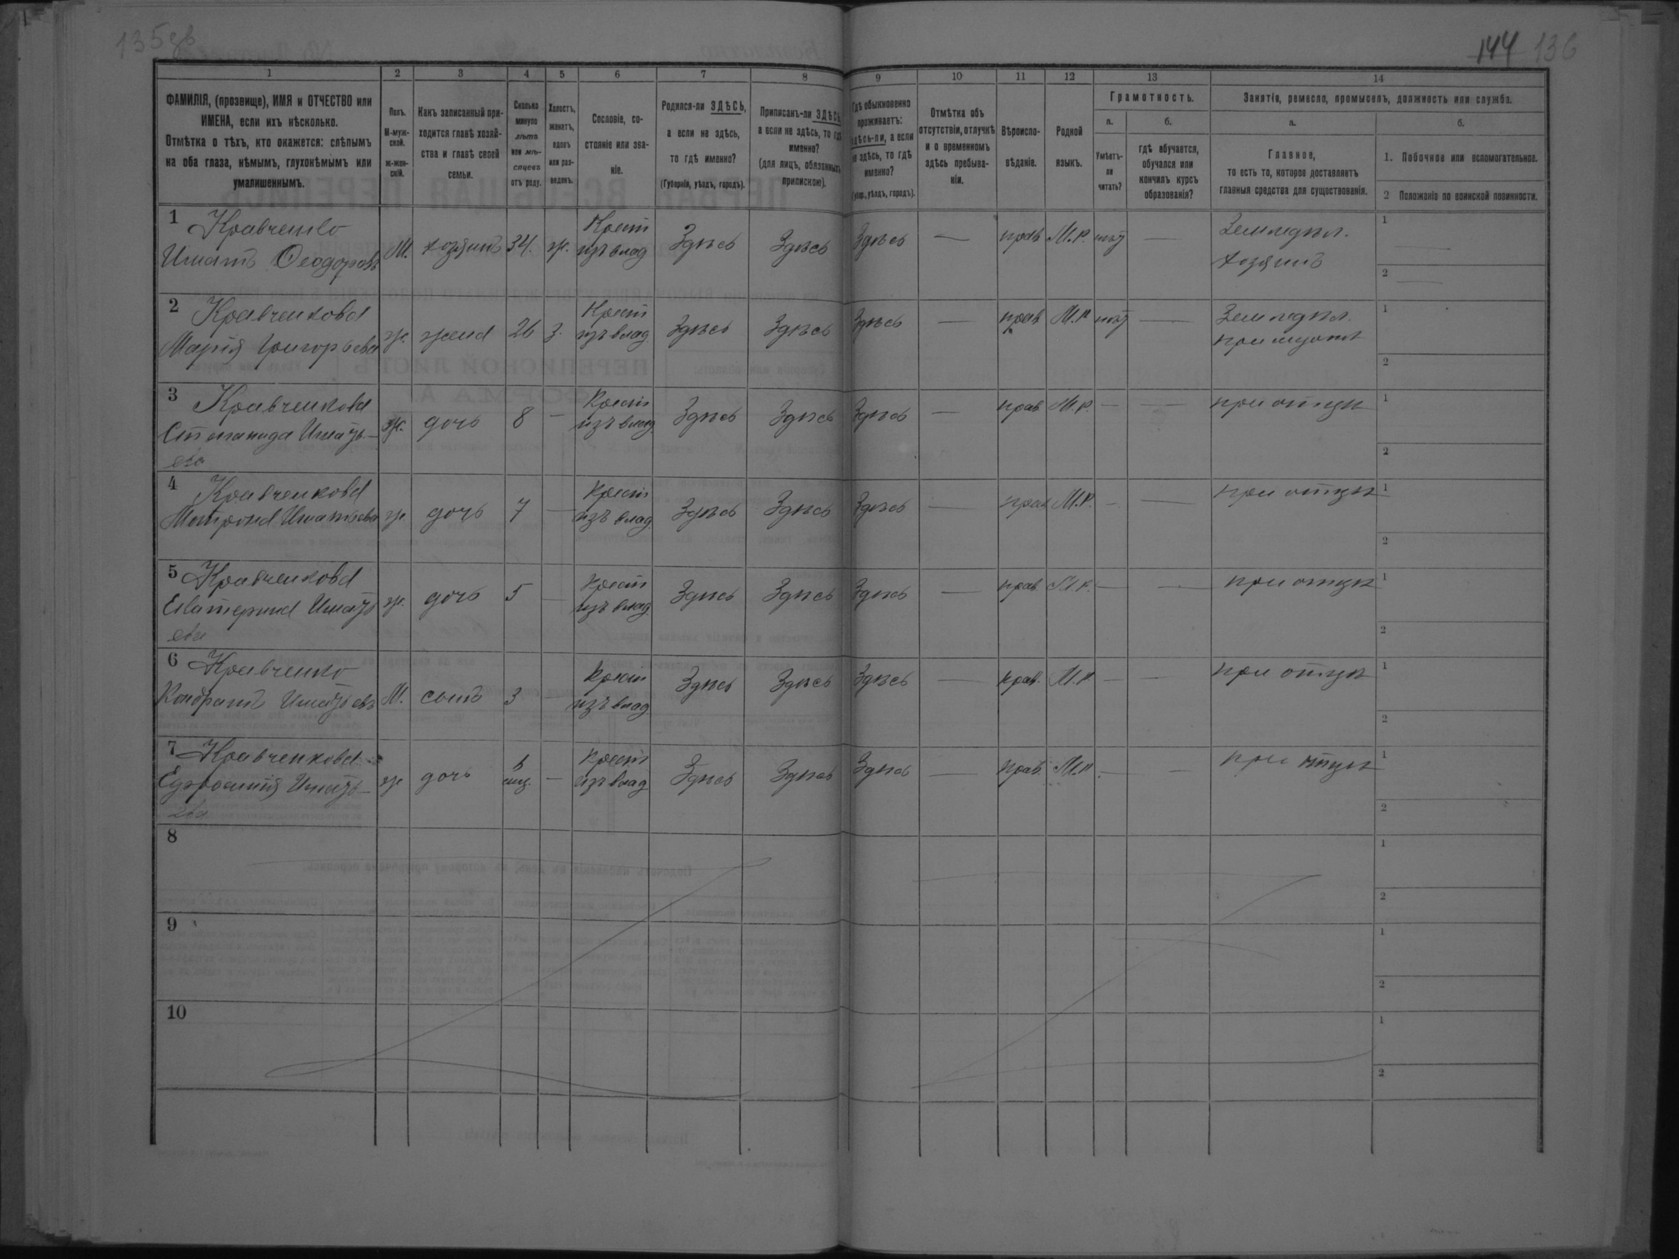 135об
144 136
1 2 3 4 5 6 7 8 9 10 11 12 13 14
ФАМИЛІЯ, (прозвище), ИМЯ и ОТЧЕСТВО или
ИМЕНА, если ихъ нѣсколько.
Отмѣтка о тѣхъ, кто окажется: слѣпымъ
на оба глаза, нѣмымъ, глухонѣмымъ или
умалишеннымъ.
Полъ.
М-муж-
ской.
Ж-жен-
скій.
Какъ записанный при-
ходится главѣ хозяй-
ства и главѣ своей
семьи.
Сколько
минуло
лѣтъ
или мѣ-
сяцевъ
отъ роду.
Холостъ,
женатъ,
вдовъ
или раз-
веденъ.
Сословіе, со-
стояніе или зва-
ніе.
Родился-ли ЗДѢСЬ,
а если не здѣсь,
то гдѣ именно?
(Губернія, уѣздъ, городъ).
Приписанъ-ли ЗДѢСЬ,
а если не здѣсь, то гдѣ
именно?
(для лицъ, обязанныхъ
припиской).
Гдѣ обыкновенно
проживаетъ:
здѣсь-ли, а если
не здѣсь, то гдѣ
именно?
(Губ., уѣздъ, городъ).
Отмѣтка объ
отсутствіи, отлучкѣ
и о временномъ
здѣсь пребыва-
ніи.
Вѣроиспо-
вѣданіе.
Родной
языкъ.
Грамотность.
а.
Умѣетъ-
ли
читать?
б.
гдѣ обучается,
обучался или
кончилъ курсъ
образованія?
Занятіе, ремесло, промыселъ, должность или служба.
а.
Главное,
то есть то, которое доставляетъ
главныя средства для существованія.
б.
1. Побочное или вспомогательное.
2 Положеніе по воинской повинности.
1 Кравченко
Игнатъ Ѳеодоровъ М. хозяинъ 34 ж. Крест изъ влад Здѣсь Здѣсь Здѣсь — прав М.Р. нѣтъ — Земледѣл. хозяинъ 1 — 2 —
2 Кравченкова
Марія Григорьева ж. жена 26 з. Крест изъ влад Здѣсь Здѣсь Здѣсь — прав М.Р нѣтъ — Земледѣл. при мужѣ 1 2
3 Кравченкова
Степанида Игнатье-
ева ж. дочь 8 — Крест изъ влад Здѣсь Здѣсь Здѣсь — прав М.Р. — — при отцѣ 1 2
4 Кравченкова
Матрона Игнатьева ж дочь 7 — Крест изъ влад Здѣсь Здѣсь Здѣсь — прав М.Р. — — при отцѣ 1 2
5 Кравченкова
Екатерина Игнать
ева ж. дочь 5 — Крест изъ влад Здѣсь Здѣсь Здѣсь — прав М.Р. — — при отцѣ 1 2
6 Кравченко
Кондратъ Игнатьевъ М. сынъ 3 Крест изъ влад Здѣсь Здѣсь Здѣсь — прав. М.Р — — при отцѣ 1 2
7 Кравченкова
Ефросинія Игнать-
ева ж дочь мц. — Крест изъ влад Здѣсь Здѣсь Здѣсь — прав М.Р. — — при отцѣ 1 2
8 1 2
9 1 2
10 1 2